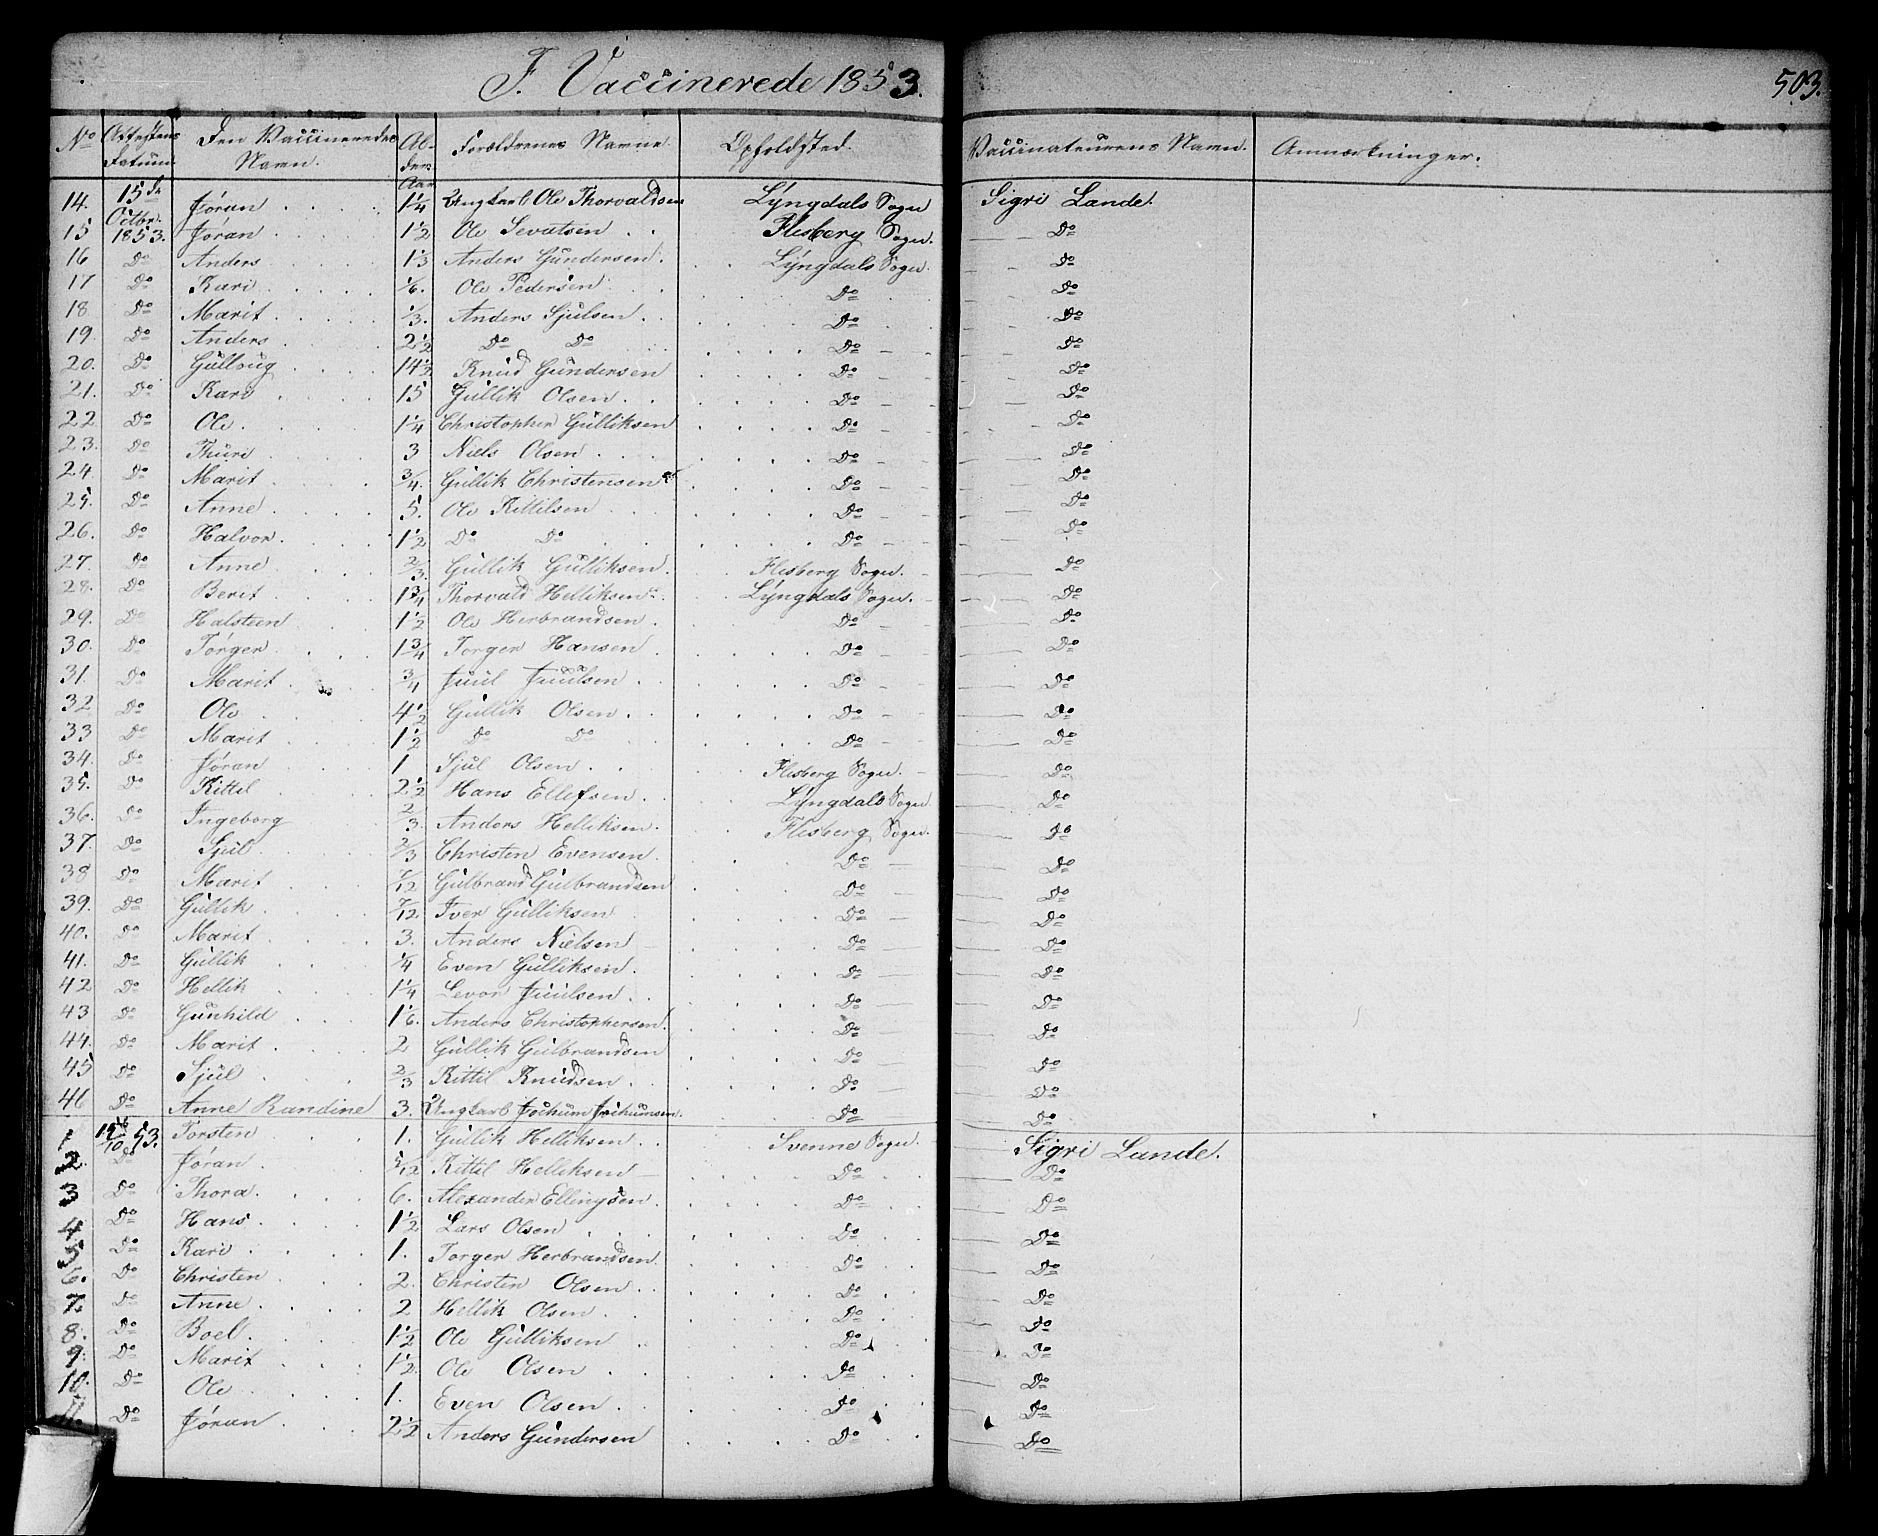 F. Vaccinerede 1853.
503.
No Attestens Datum. Den Vaccineredes Navn. Alder Aar Forældrenes Navne. Opholdsted. Vaccinateurens Navn. Anmærkninger.
14. 15de Octbr. 1853. Jøran 1 1/4 Ungkarl Ole Thorvaldsen Lyngdals Sogn Sigri Lande.
15 Jøran 1 1/2 Ole Sevatsen Flesberg Sogn. Do
16 Do Anders 1/3 Anders Gundersen. Lyngdals Sogn. Do
17 Do Kari 1/6. Ole Pedersen Do Do
18 Do Marit 1/3. Anders Sjulsen Do Do
19. Do Anders 2 1/2 Do Do Do Do
20. Do Gullaug 14 1/2 Knud Gundersen Do Do
21. Do Kari 15 Gullik Olsen Do Do
22 Do Ole 1 1/4 Christopher Gulliksen Do Do
23. Do Thuri 3 Niels Olsen Do Do
24 Do Marit 3/4. Gullik Christensen Do Do
25. Do Anne 5. Ole Kittilsen Do Do
26. Do Halvor 1 1/2 Do Do Do Do
27. Do Anne 2/3. Gullik Gulliksen. Flesberg Sogn. Do
28. Do Berit 1 3/4 Thorvald Helliksen Lyngdals Sogn. Do
29. Do Halsteen 1 1/2 Ole Herbrandsen Do Do
30. Do Torger 1 3/4 Torger Hansen Do Do
31. Do Marit 3/4 Juul Juulsen Do Do
32 Do Ole 4 1/2 Gullik Olsen Do Do
33 Do Marit 1 1/2 Do Do Do Do
34. Do Jøran 1 Sjul Olsen Flesberg Sogn. Do
35. Do Kittil 2 1/2 Hans Ellefsen Lyngdals Sogn Do
36. Do Ingeborg 2/3. Anders Helliksen. Flesberg Sogn. Do
37. Do Sjul 2/3 Christen Evensen Do Do
38 Do Marit 7/12 Gulbrand Gulbrandsen Do Do
39. Do Gullik 7/12. Iver Gulliksen Do Do
40. Do Marit 3. Anders Nielsen Do Do
41. Do Gullik 1/4 Even Gulliksen. Do Do
42 Do Hellik 1 1/4 Levor Juulsen Do Do
43 Do Gunhild 1 1/6. Anders Christophersen. Do Do
44. Do Marit 2 Gullik Gulbrandsen Do Do
45 Do Sjul 2/3 Kittil Knudsen Do Do
46 Do Anne Randine 3. Ungkarl Jochum Jochumsen. Do Do
1. 15/10 53. Torsten 1. Gullik Helliksen Svenne Sogn. Sigri Lande.
2. Do Jøran 5/12 Kittil Helliksen Do Do
3 Do Thora 6. Alexander Ellingsen Do Do
4 Do Hans 1 1/2 Lars Olsen Do Do
5 Do Kari 1. Torger Herbrandsen. Do Do
6. Do Christen 2. Christen Olsen Do Do
7. Do Anne 2 Hellik Olsen Do Do
8. Do Boel 1 1/2 Ole Gulliksen Do Do
9. Do Marit 1 1/2. Ole Olsen Do Do
10. Do Ole 1. Even Olsen Do Do
11. Do Jøran 2 1/2 Anders Gundersen Do Do